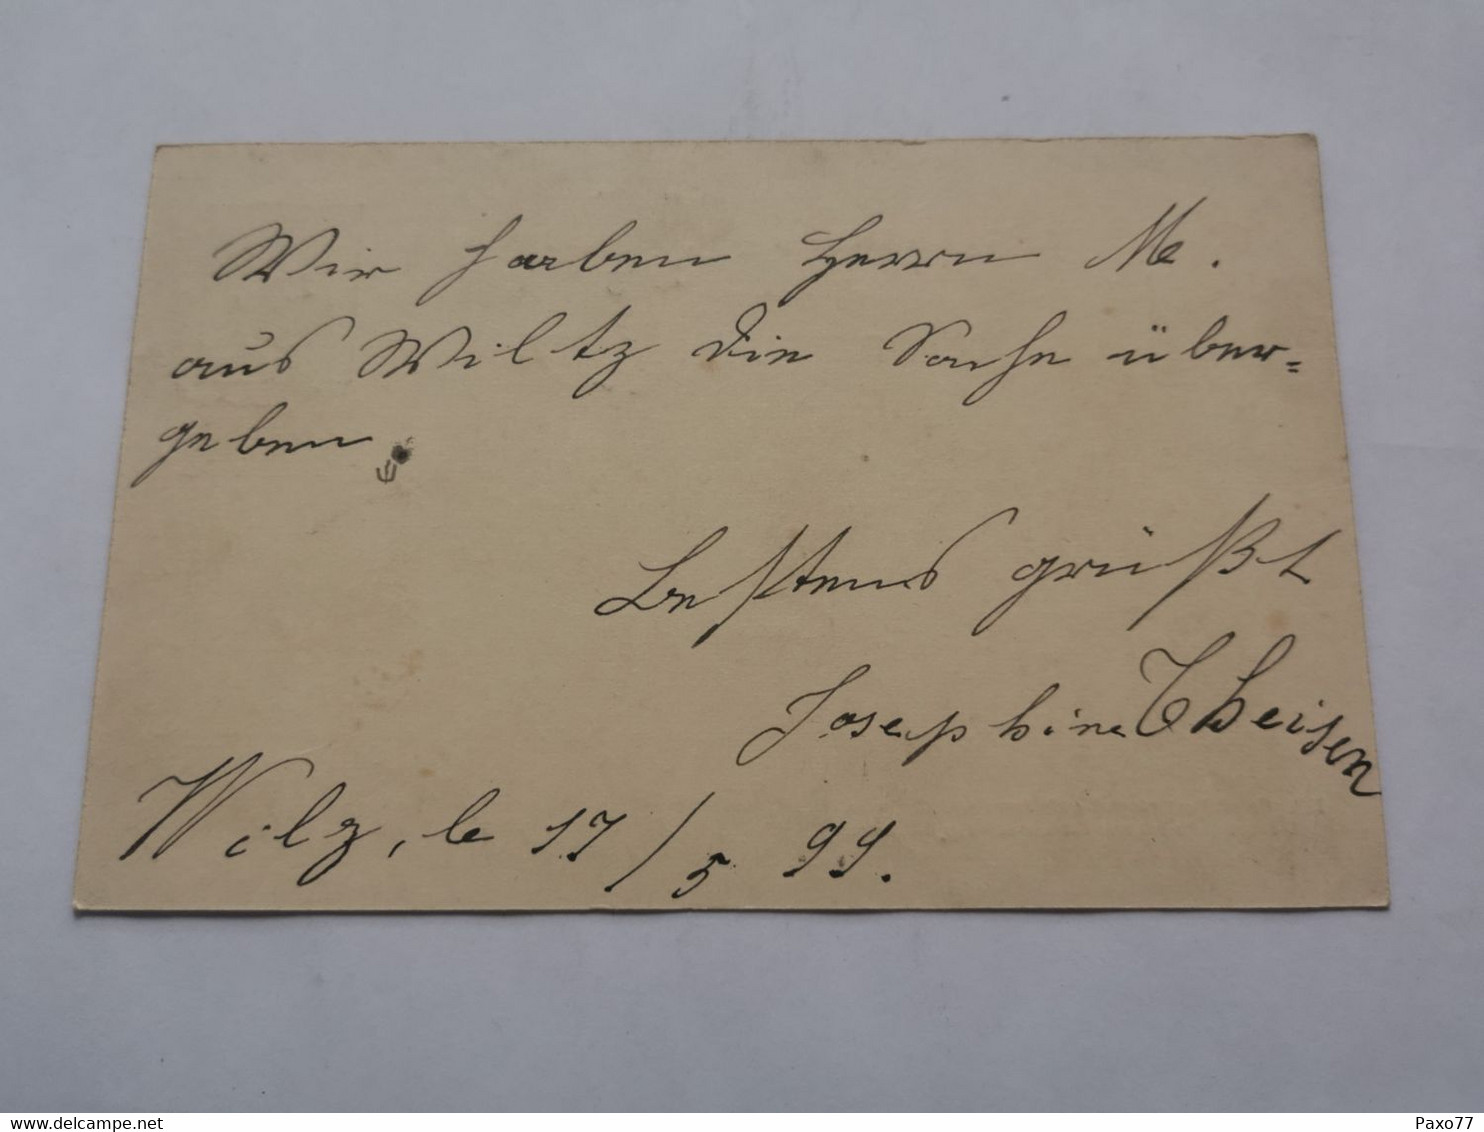 Wir haben Herrn M.
aus Wiltz die Sache über=
geben.
Bestens grüßt
Josephine Theisen
Wilz, le 17/5 99.
delcampe.net
Paxo77